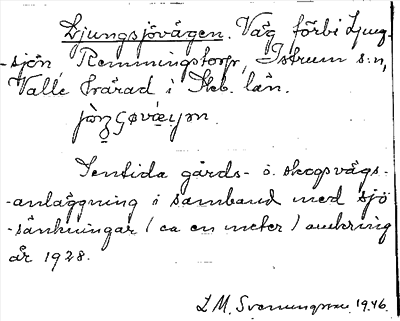 Djungsjövägen. Väg förbi Ljung-
-sjön Remmingstorp, Istrum s:n,
Valle härad i Skb. län.
Sentida gårds- o. skogsvägs-
-anläggning i samband med sjö
-sänkningar (ca en meter) omkring
år 1928.
L M. Svenungsson. 1946.